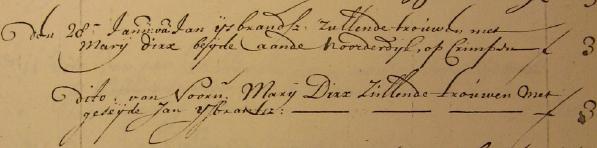 Den 28en Janu: va Jan ysbrandsz: zullende trouwen met
Marij dirx beijde aande Noorderdijk, op Crimpen f 3
dito. van Voorn: Marij Dirx Zullende trouwen Met
geseijde Jan ysbrantsz: f 3